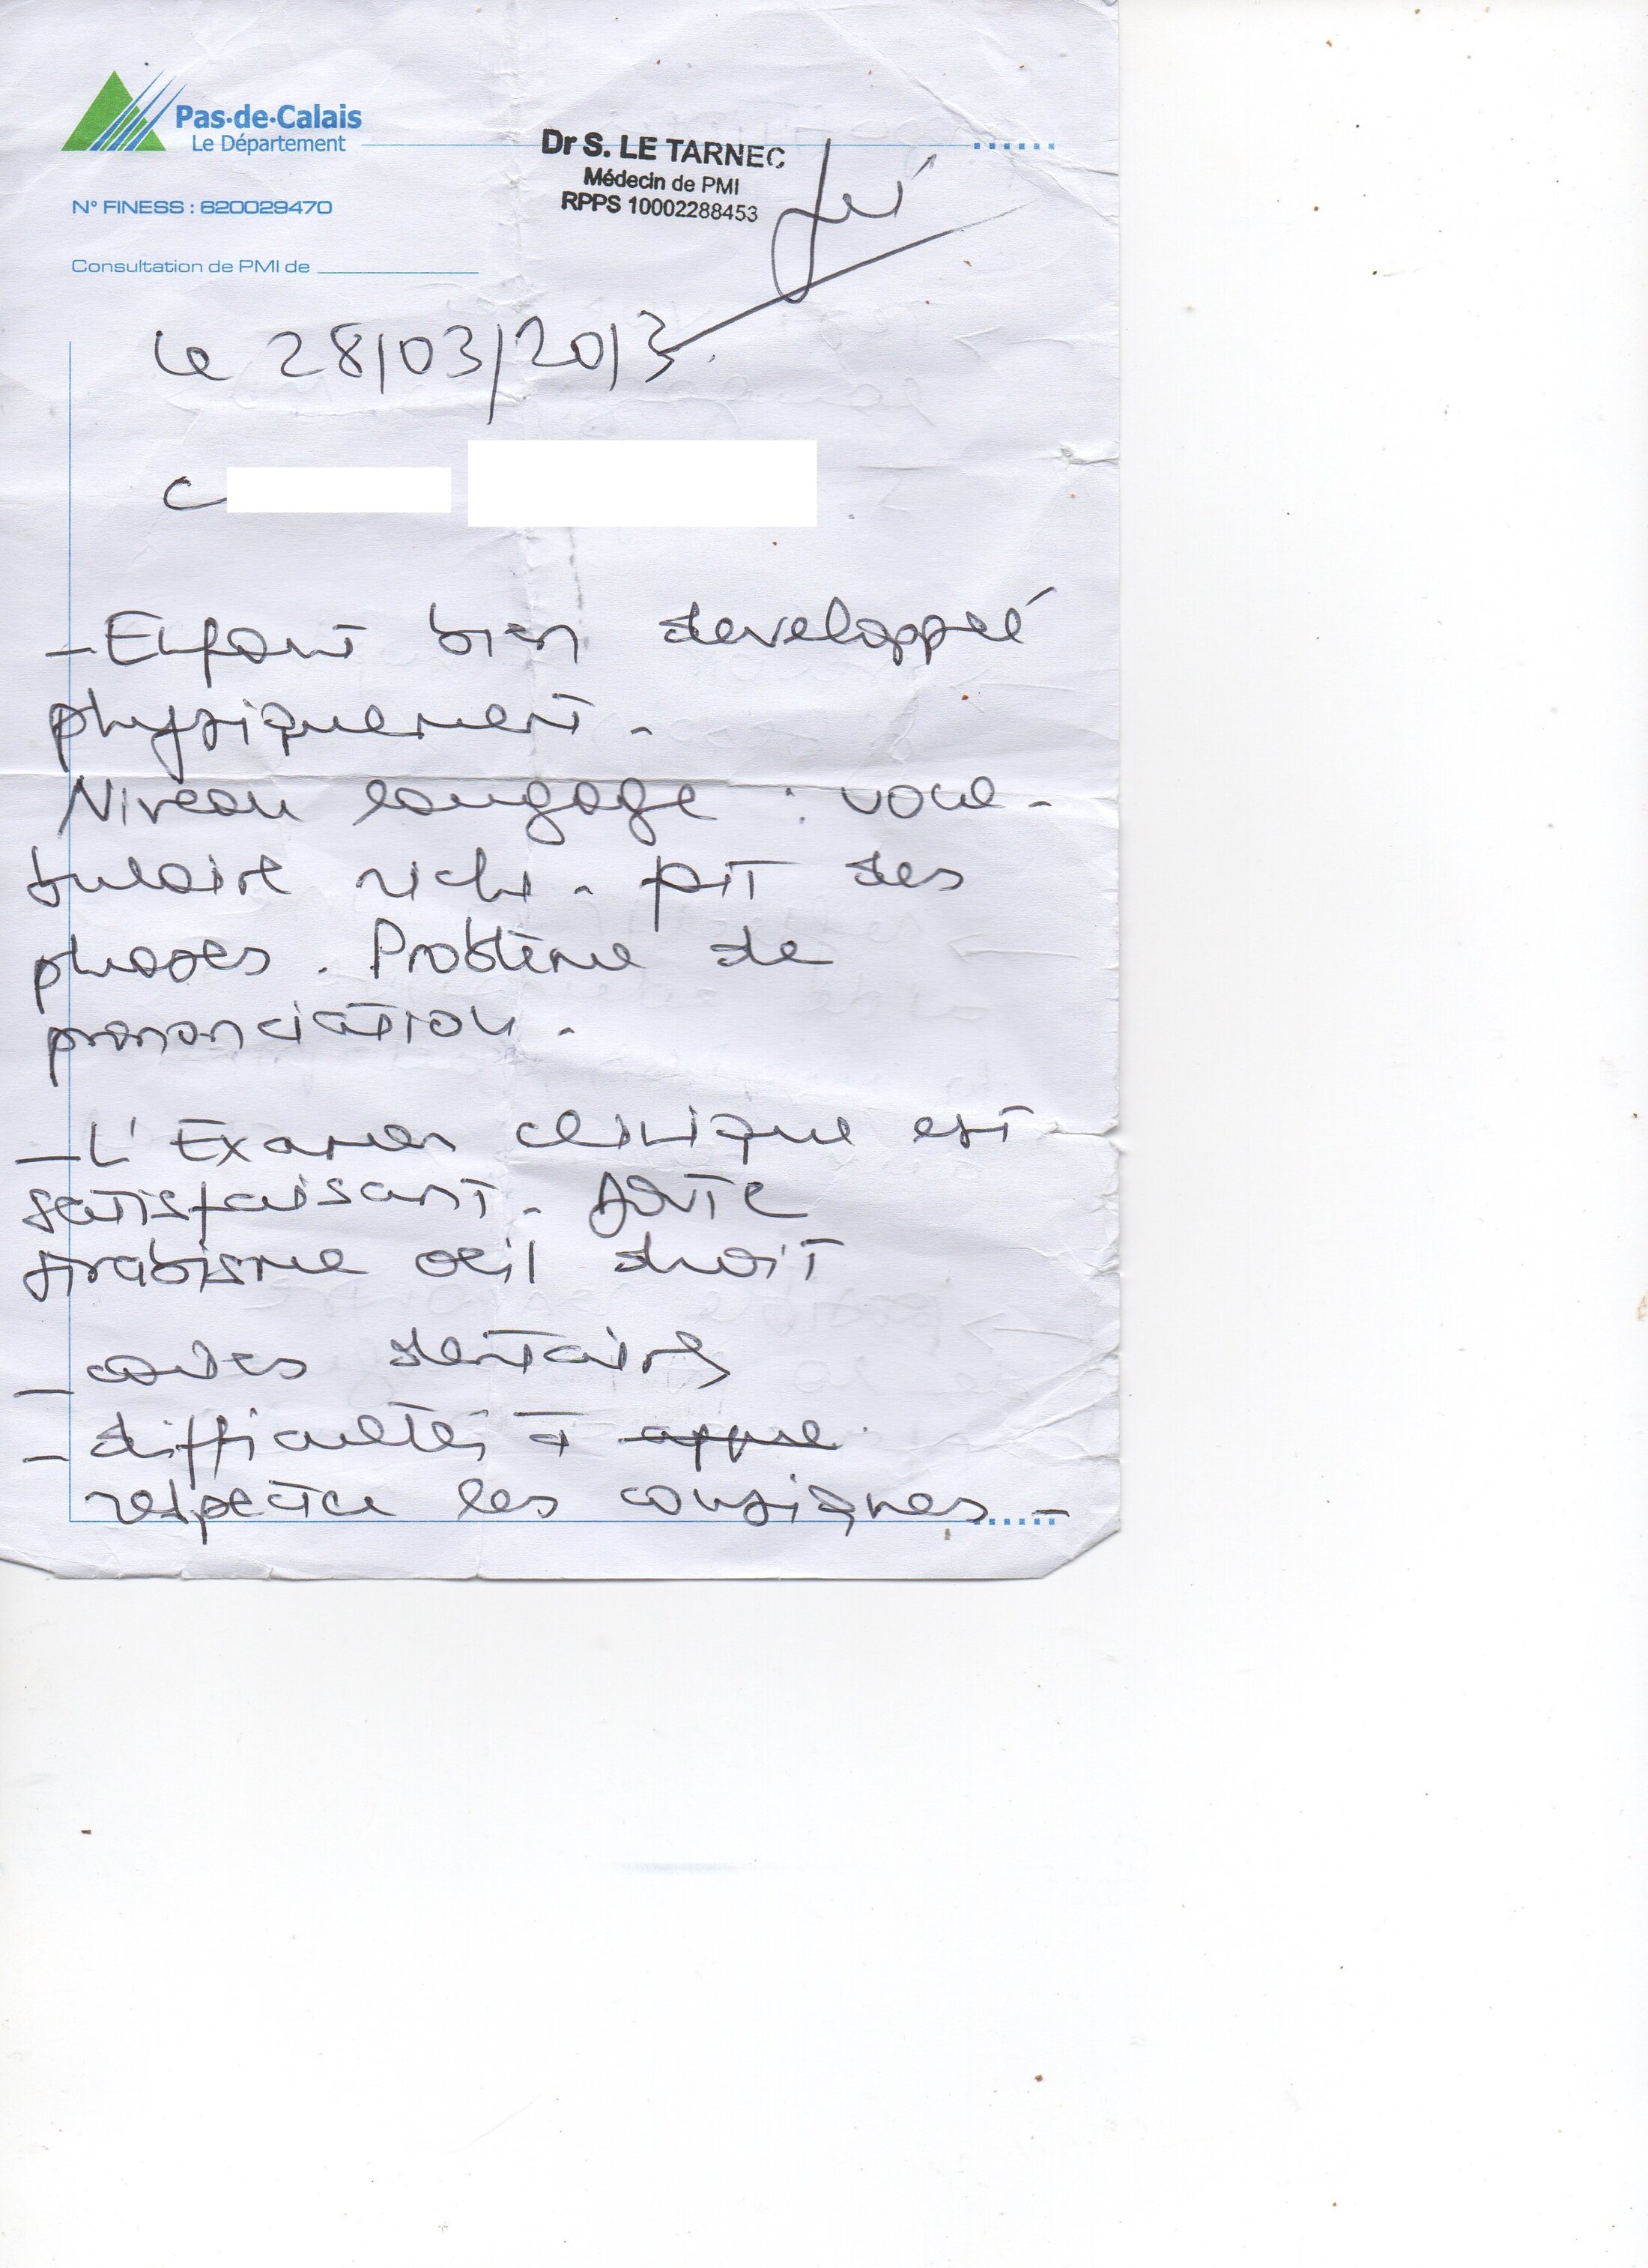 Pas-de-Calais
Le Département
Dr S. LE TARNEC
Médecin de PMI
RPPS 10002288453
N° FINESS : 620029470
Consultation de PMI de
Le 28/03/2013
C
- Enfant bien developpé
physiquement.
Niveau langage : voca-
bulaire riche. fait des
phrases. Problème de
prononciation.
- L'Examen clinique est
satisfaisant. Porte
strabisme oeil droit
- caries dentaires
- difficultés à
respecter les consignes -